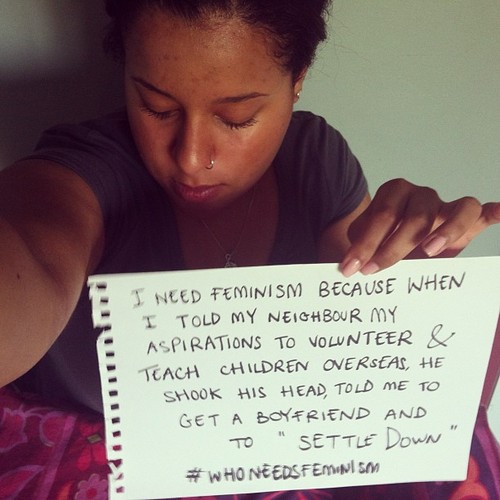 I NEED FEMINISM BECAUSE WHEN
I TOLD MY NEIGHBOUR MY
ASPIRATIONS TO VOLUNTEER &
TEACH CHILDREN OVERSEAS, HE
SHOOK HIS HEAD, TOLD ME TO
GET A BOYFRIEND AND
TO "SETTLE DOWN"
#WHONEEDSFEMINISM